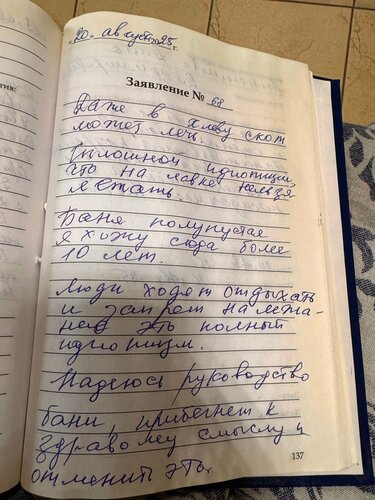 "20" август 2025 г.
Заявление № 68
Даже в хлеву скот
может лечь.
Сплошной идиотизм,
что на лавке нельзя
лежать.
Баня полупустая
Я хожу сюда более
10 лет.
Люди ходят отдыхать
и запрет на лежа-
ние это полный
идиотизм.
Надеюсь руководство
бани, прибегнет к
здравому смыслу и
отменит это.
137